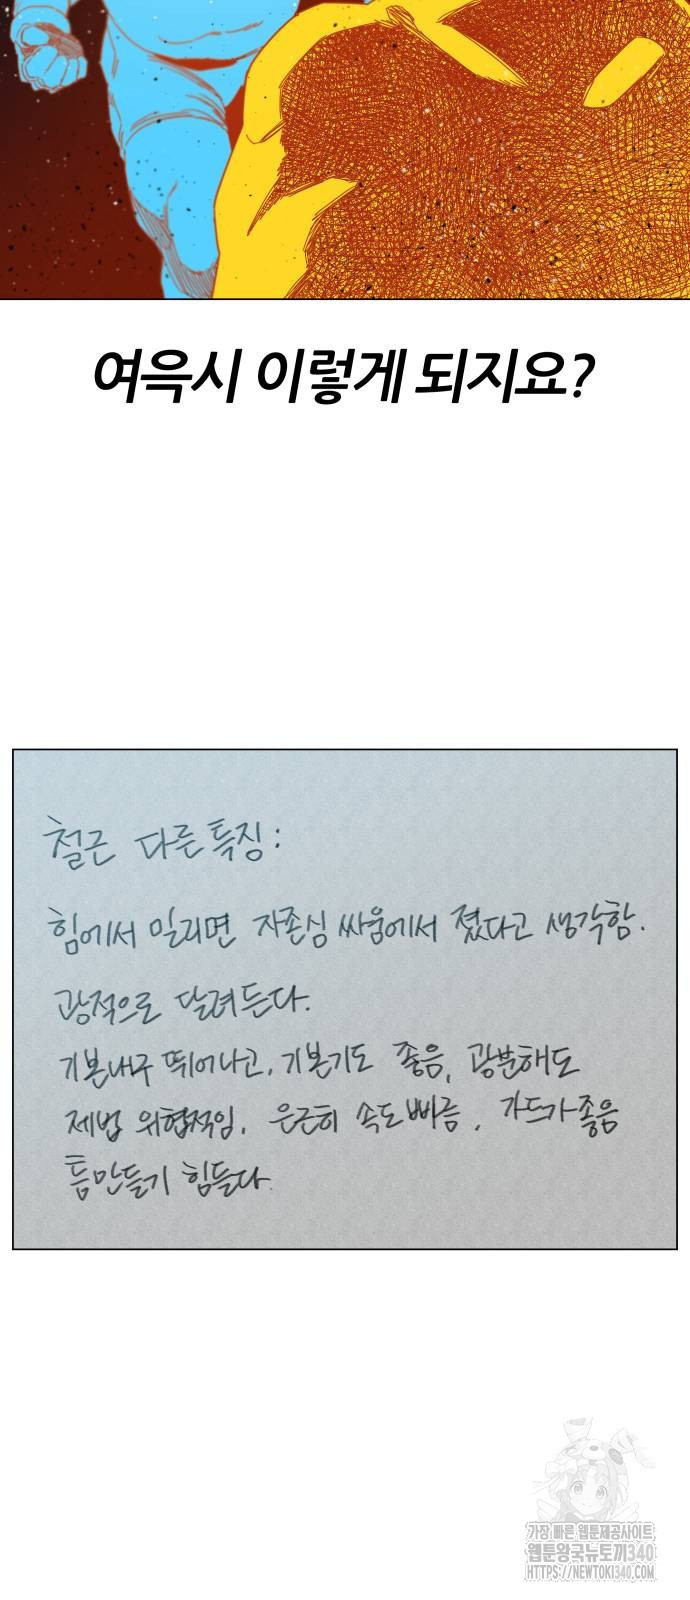 여윽시 이렇게 되지요?
철근 다른 특징:
힘에서 밀리면 자존심 싸움에서 졌다고 생각함.
광적으로 달려든다.
기본내구 뛰어나고, 기본기도 좋음, 광분해도
제법 위협적임. 은근히 속도 빠름, 가드가 좋음
틈만들기 힘들다.
가장 빠른 웹툰제공사이트
웹툰왕국뉴토끼340
HTTPS://NEWTOKI340.COM